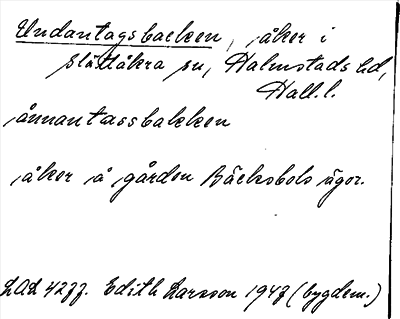 Undantagsbacken, åker i
Slättåkra sn, Halmstads hd,
Hall. l.
ånnantassbakken
åker å gården Bäcksbols ägor.
LAL 4277. Edith Larsson 1947 (bygdem.)